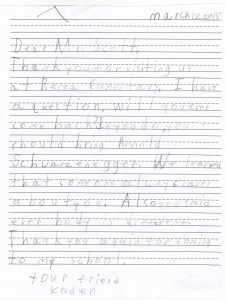 march 12 2018
Dear Mr. Scott,
Thank you for visiting us
at Elementary. I have
a question, will you ever
come back? If you do, you
should bring Arnold
Schwarzenegger. We learned
that someone always cares
about you. Also you said
every body is different.
Thank you again for coming
to my school.
your friend
Kaden